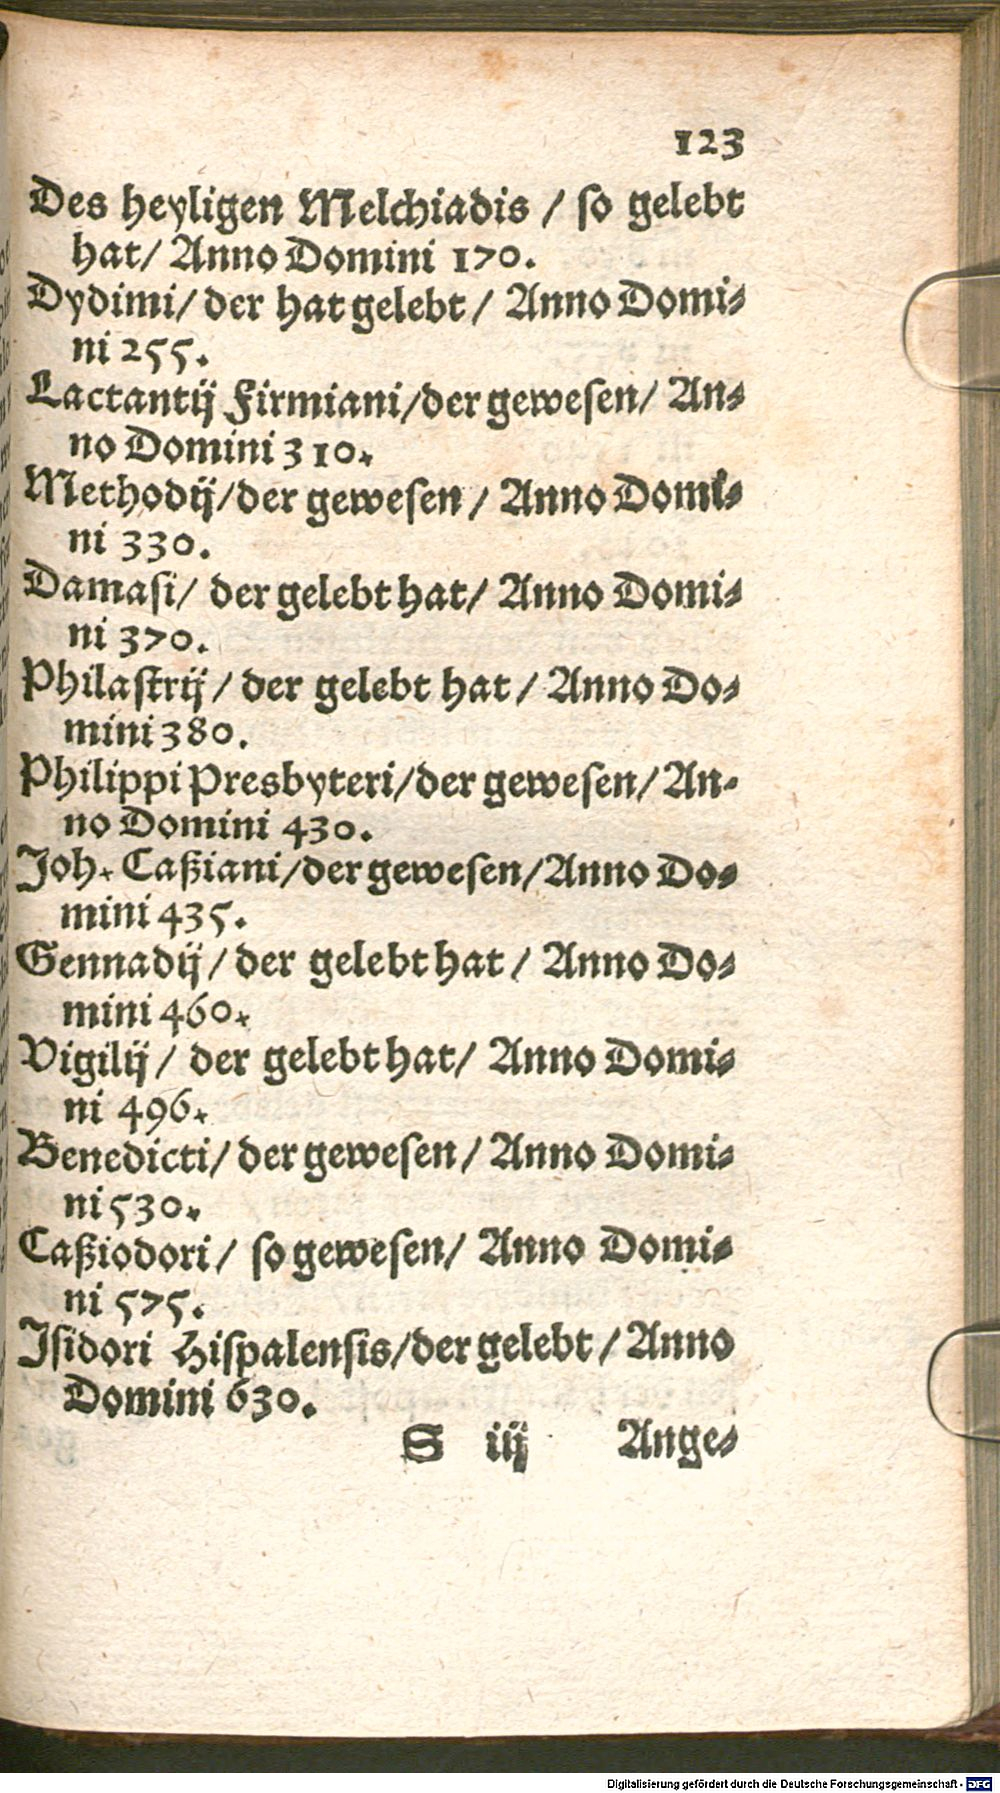 123
Des heyligen Melchiadis / so gelebt
hat/ Anno Domini 170.
Dydimi/ der hat gelebt / Anno Domi⸗
ni 255.
Lactantij Firmiani/der gewesen/ An⸗
no Domini 310.
Methodij/der gewesen / Anno Domi⸗
ni 330.
Damasi/ der gelebt hat/ Anno Domi⸗
ni 370.
Philastrij / der gelebt hat / Anno Do⸗
mini 380.
Philippi Presbyteri/der gewesen/ An-
no Domini 430.
Joh. Caßiani/der gewesen/Anno Do⸗
mini 435.
Gennadij / der gelebt hat / Anno Do⸗
mini 460.
Vigilij / der gelebt hat/ Anno Domi⸗
ni 496.
Benedicti/ der gewesen / Anno Domi⸗
ni 530.
Caßiodori / so gewesen/ Anno Domi⸗
ni 575.
Isidori Hispalensis/der gelebt / Anno
Domini 630.
S iij Ange⸗
Digitalisierung gefördert durch die Deutsche Forschungsgemeinschaft - DFG